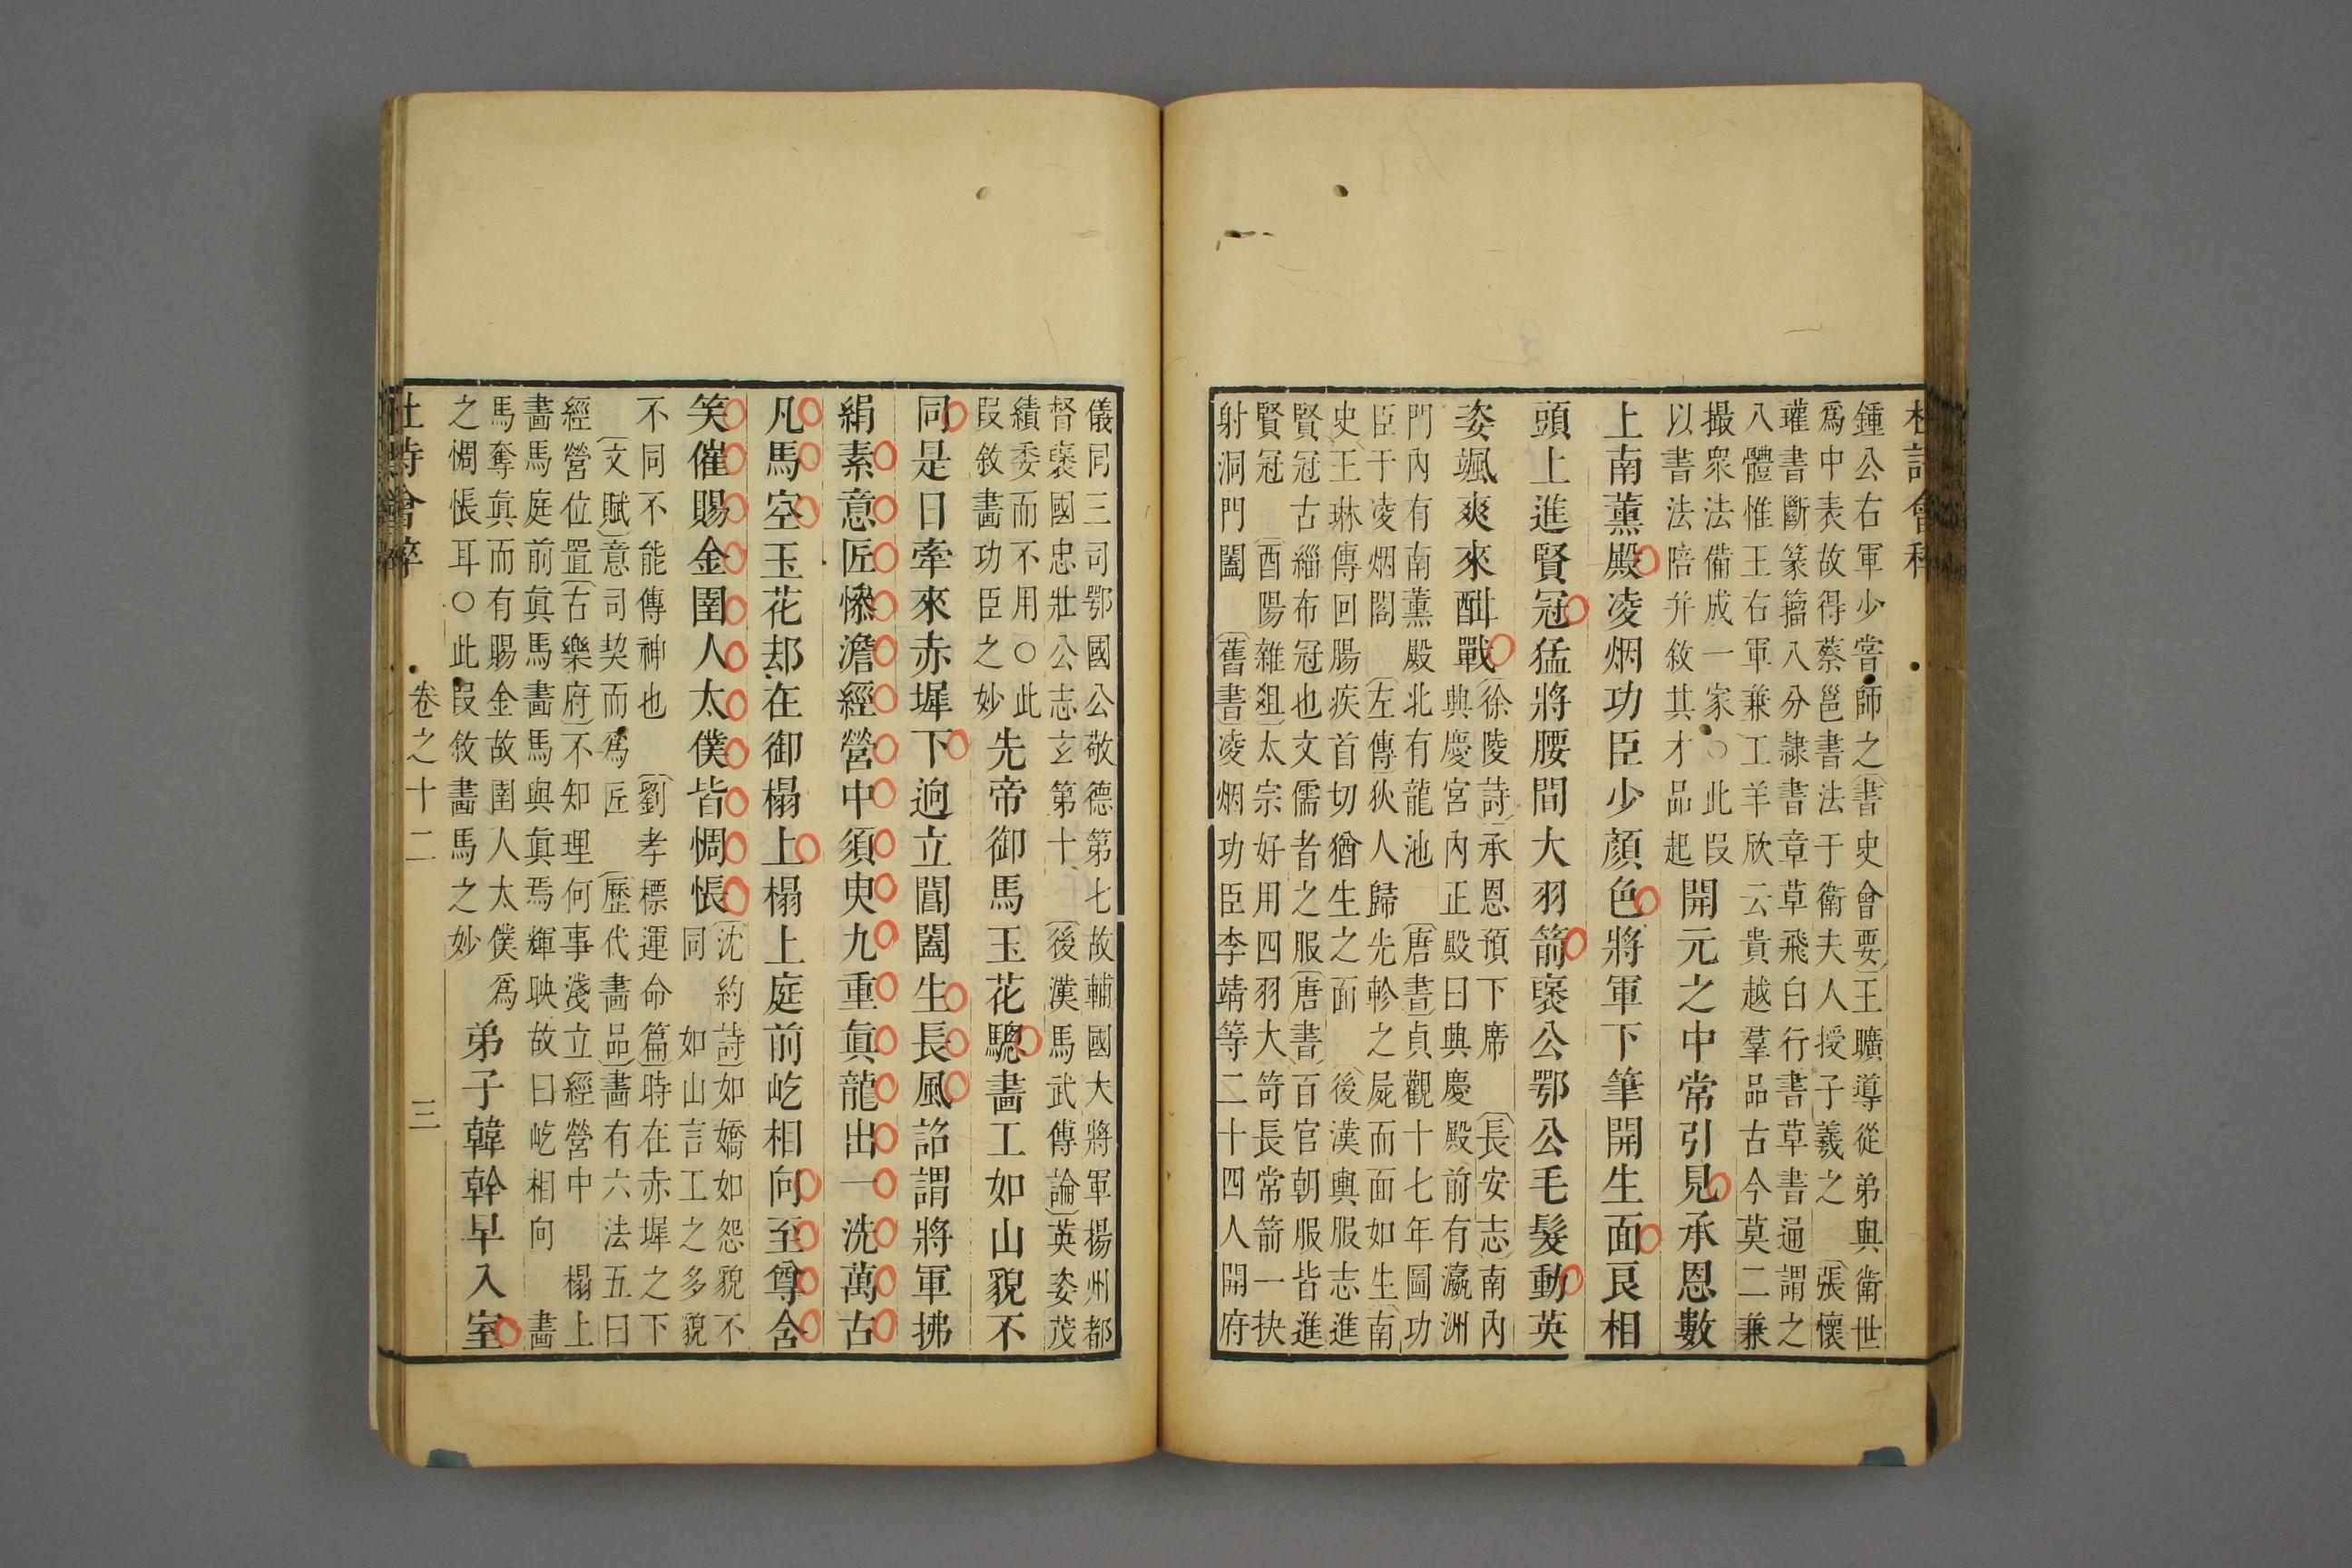 杜詩會稡
鍾公右軍少嘗師之(書史會要)王曠導從弟與衛世
爲中表故得蔡邕書法于衛夫人授子羲之(張懷
瓘書斷篆籀八分隷書章草飛白行書草書通謂之
八體惟王右軍兼工羊欣云貴越羣品古今莫二兼
撮衆法備成一家○此叚
以書法陪并敘其才品起
開元之中常引見承恩數
上南薰殿凌烟功臣少顏色將軍下筆開生面良相
頭上進賢冠猛將腰間大羽箭褒公鄂公毛髮動英
姿颯爽來酣戰
(徐陵詩)承恩預下席(長安志)南內
興慶宮內正殿曰興慶殿前有瀛洲
門內有南薰殿北有龍池(唐書)貞觀十七年圖功
臣于凌烟閣(左傳)狄人歸先軫之屍而面如生(南
史)王琳傳回腸疾首切猶生之面(後漢輿服志)進
賢冠古緇布冠也文儒者之服(唐書)百官朝服皆進
賢冠(酉陽雜俎)太宗好用四羽大笴長常箭一抉
射洞門闔(舊書)凌烟功臣李靖等二十四人開府
儀同三司鄂國公敬德第七故輔國大將軍揚州都
督褒國忠壯公志玄第十(後漢馬武傳論)英姿茂
績委而不用○此
叚敘畵功臣之妙
先帝御馬玉花驄畵工如山貌不
同是日牽來赤墀下逈立閶闔生長風詔謂將軍拂
絹素意匠慘澹經營中須臾九重眞龍出一洗萬古
凡馬空玉花却在御榻上榻上庭前屹相向至尊含
笑催賜金圉人太僕皆惆悵
(沈約詩)如嬌如怨貌不
同 如山言工之多貌
不同不能傳神也(劉孝標運命篇)時在赤墀之下
(文賦)意司契而爲匠(歷代畵品)畵有六法五曰
經營位置(古樂府)不知理何事淺立經營中 榻上
畵馬庭前眞馬畵馬與眞焉輝映故曰屹相向 畵
馬奪眞而有賜金故圉人太僕爲
之惆悵耳○此叚敘畵馬之妙
弟子韓幹早入室
杜詩會稡 卷之十二 三